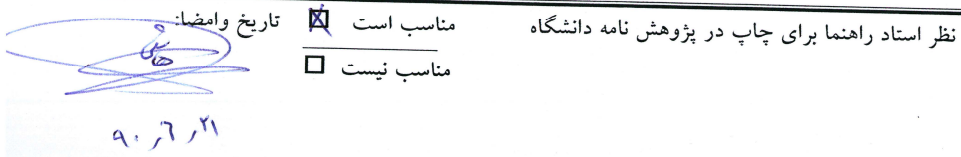 نظر استاد راهنما برای چاپ در پژوهش نامه دانشگاه مناسب است ☒ تاریخ وامضا:
مناسب نیست ☐
۹۰٫۶٫۲۱